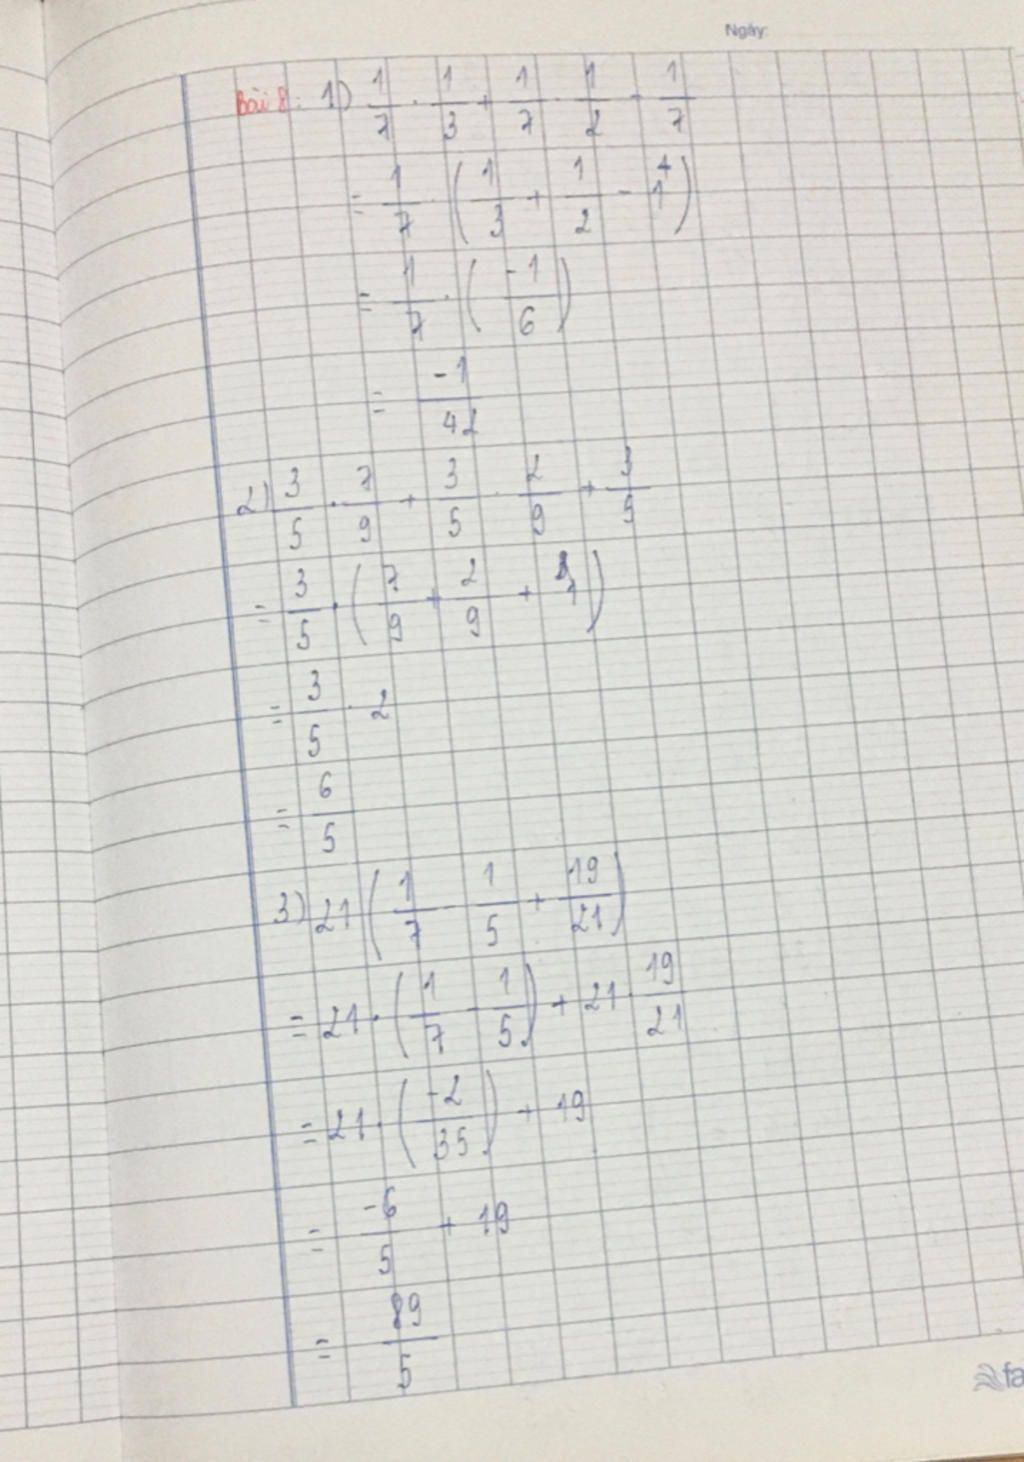 Ngày:
Bài 8: 1) 1/7 · 1/3 + 1/7 · 1/2 - 1/7
= 1/7 · (1/3 + 1/2 - 1)
= 1/7 · (-1/6)
= -1/42
2) 3/5 · 7/9 + 3/5 · 2/9 + 3/5
= 3/5 · (7/9 + 2/9 + 1)
= 3/5 · 2
= 6/5
3) 21 (1/7 - 1/5 + 19/21)
= 21 · (1/7 - 1/5) + 21 · 19/21
= 21 · (-2/35) + 19
= -6/5 + 19
= 89/5
fa